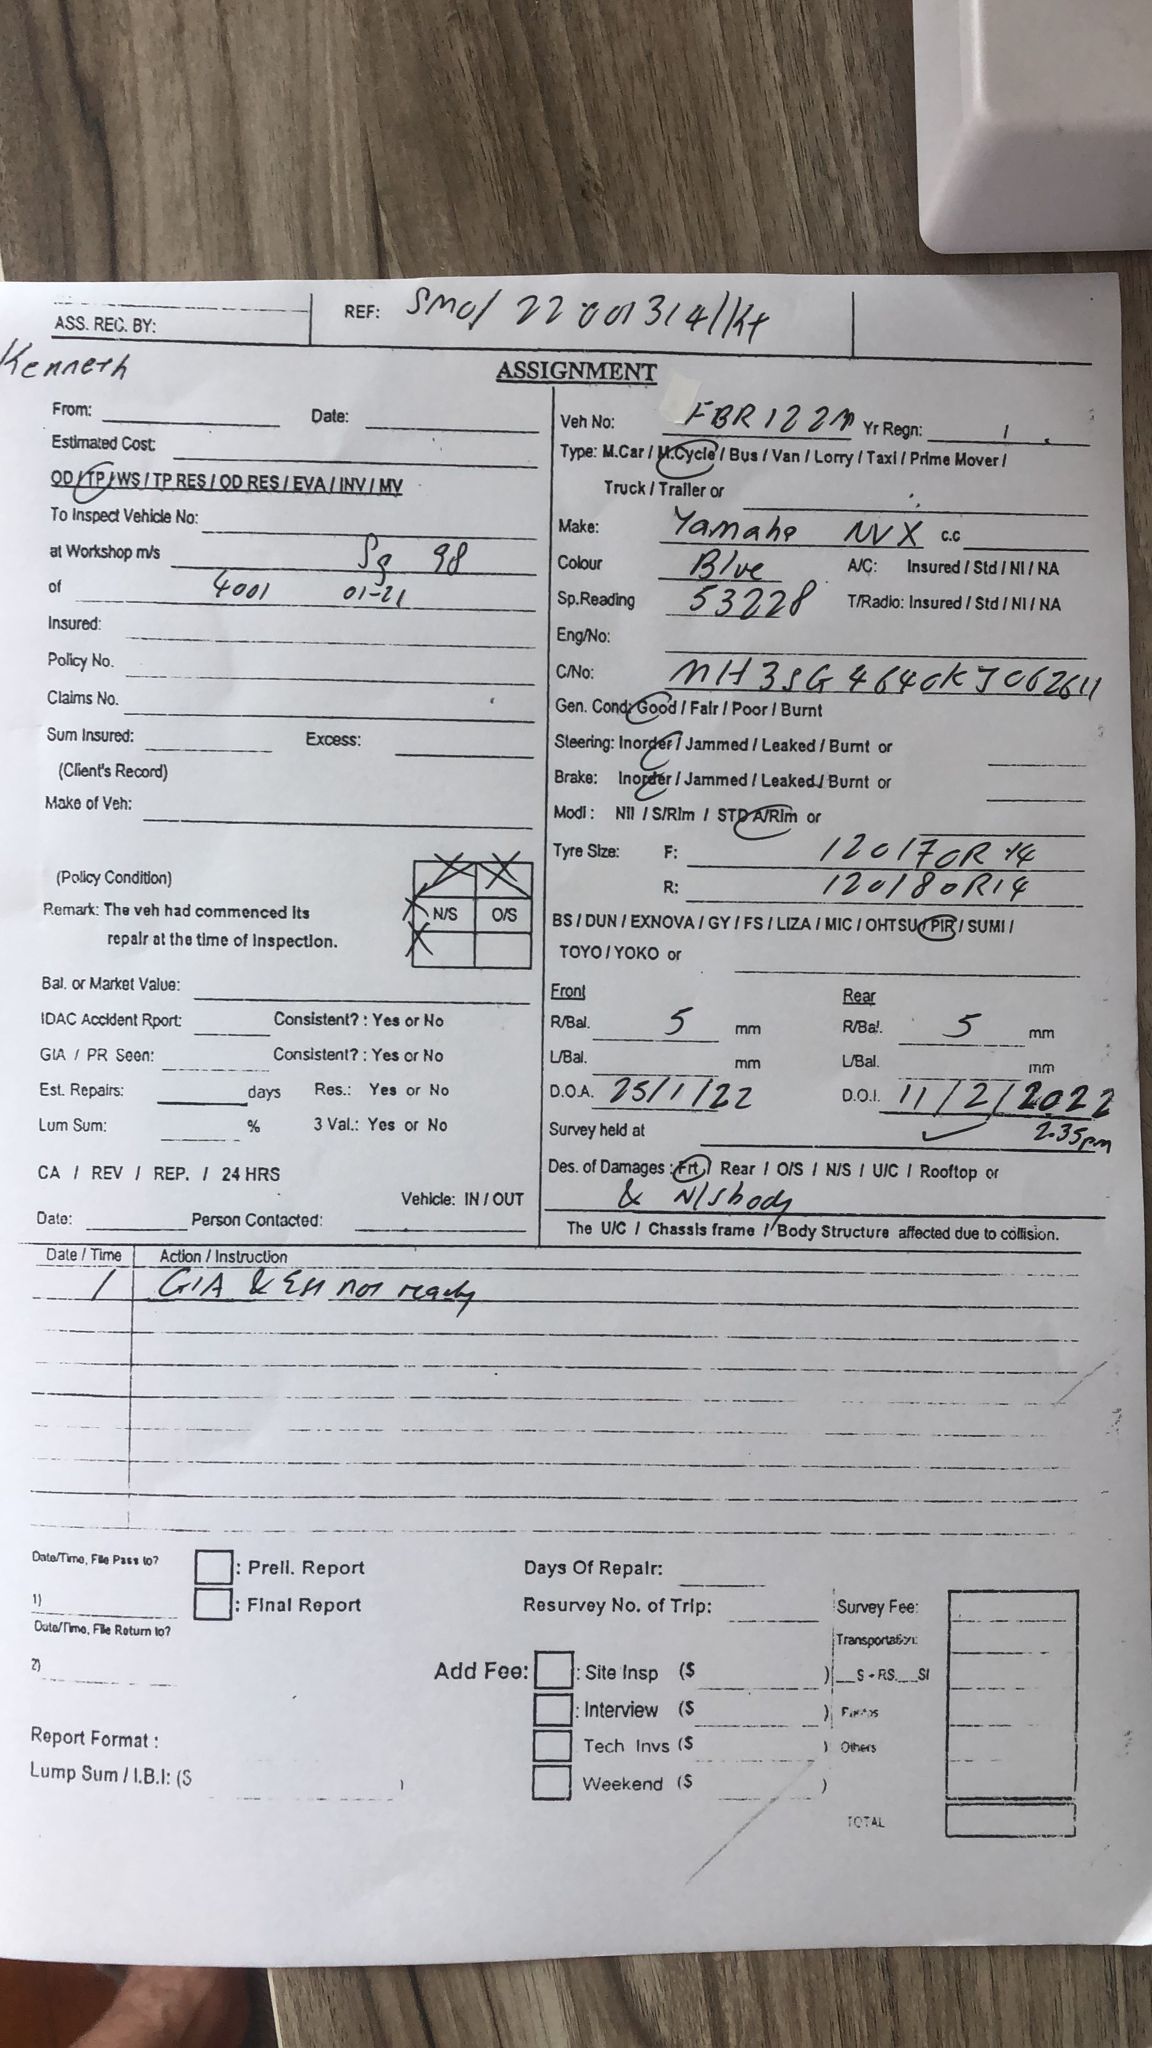 ASS. REC. BY:
Kenneth
REF: SMO/ 22001314/Kt
ASSIGNMENT
From: Date:
Estimated Cost:
OD / TP / WS / TP RES / OD RES / EVA / INV / MV
To Inspect Vehicle No:
at Workshop m/s Sg 98
of 4001 01-21
Insured:
Policy No.
Claims No.
Sum Insured: Excess:
(Client's Record)
Make of Veh:
(Policy Condition)
Remark: The veh had commenced its
repair at the time of inspection.
N/S O/S
Bal. or Market Value:
IDAC Accident Rport: Consistent? : Yes or No
GIA / PR Seen: Consistent? : Yes or No
Est. Repairs: days Res.: Yes or No
Lum Sum: % 3 Val.: Yes or No
CA / REV / REP. / 24 HRS
Vehicle: IN / OUT
Date: Person Contacted:
Veh No: FBR122M Yr Regn: /
Type: M.Car / M.Cycle / Bus / Van / Lorry / Taxi / Prime Mover /
Truck / Trailer or
Make: Yamaha NVX c.c
Colour Blue A/C: Insured / Std / NI / NA
Sp.Reading 53228 T/Radio: Insured / Std / NI / NA
Eng/No:
C/No: MH3SG4640KJ062611
Gen. Cond: Good / Fair / Poor / Burnt
Steering: Inorder / Jammed / Leaked / Burnt or
Brake: Inorder / Jammed / Leaked / Burnt or
Modi : Nil / S/Rim / STD A/Rim or
Tyre Size: F: 120170R14
R: 120180R14
BS / DUN / EXNOVA / GY / FS / LIZA / MIC / OHTSU / PIR / SUMI /
TOYO / YOKO or
Front Rear
R/Bal. 5 mm R/Bal. 5 mm
L/Bal. mm L/Bal. mm
D.O.A. 25/1/22 D.O.I. 11/2/2022
Survey held at 2.35pm
Des. of Damages : Frt / Rear / O/S / N/S / U/C / Rooftop or
& N/S body
The U/C / Chassis frame / Body Structure affected due to collision.
Date / Time Action / Instruction
/ GIA & Est not ready
Date/Time, File Pass to?
1)
Date/Time, File Return to?
2)
: Preli. Report
: Final Report
Days Of Repair:
Resurvey No. of Trip:
Survey Fee:
Transportation:
Add Fee: : Site Insp ($ ) __S + RS.__SI
: Interview ($ )
Tech Invs ($ ) Others
Weekend ($ )
TOTAL
Report Format :
Lump Sum / I.B.I: ($ )